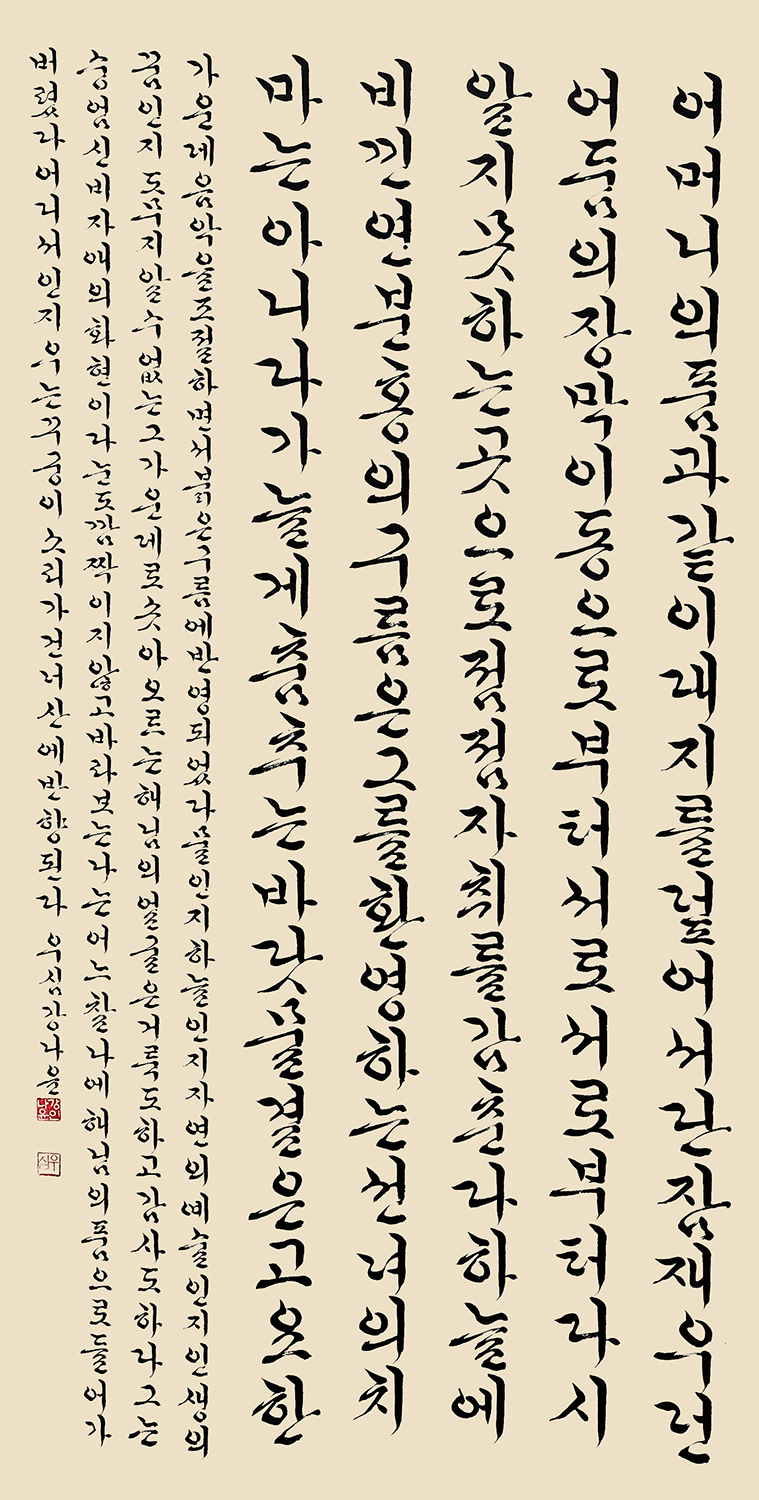 어머니의품과같이대지를덮어서단잠재우던
어둠의장막이동으로부터서로서로부터다시
알지못하는곳으로점점자취를감춘다하늘에
비낀연분홍의구름은그를환영하는선녀의치
마는아니다가늘게춤추는바닷물결은고요한
가운데음악을조절하면서붉은구름에반영되었다물인지하늘인지자연의예술인지인생의
꿈인지도무지알수없는그가운데로솟아오르는해님의얼굴은거룩도하고감사도하다그는
숭엄신비자애의화현이다눈도깜짝이지않고바라보는나는어느찰나에해님의품으로들어가
버렸다어디서인지우는꾸궁이소리가건너산에반향된다 우심
우심